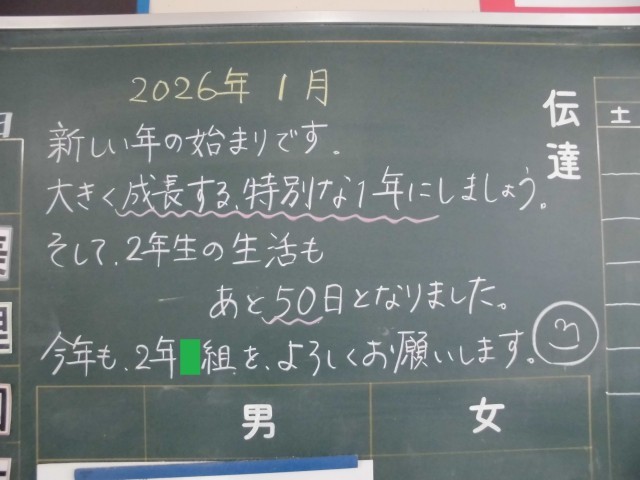 2026年 1月
新しい年の始まりです。
大きく成長する、特別な1年にしましょう。
そして、2年生の生活も
あと50日となりました。
今年も、2年
組を、よろしくお願いします。
伝達
土
男
女